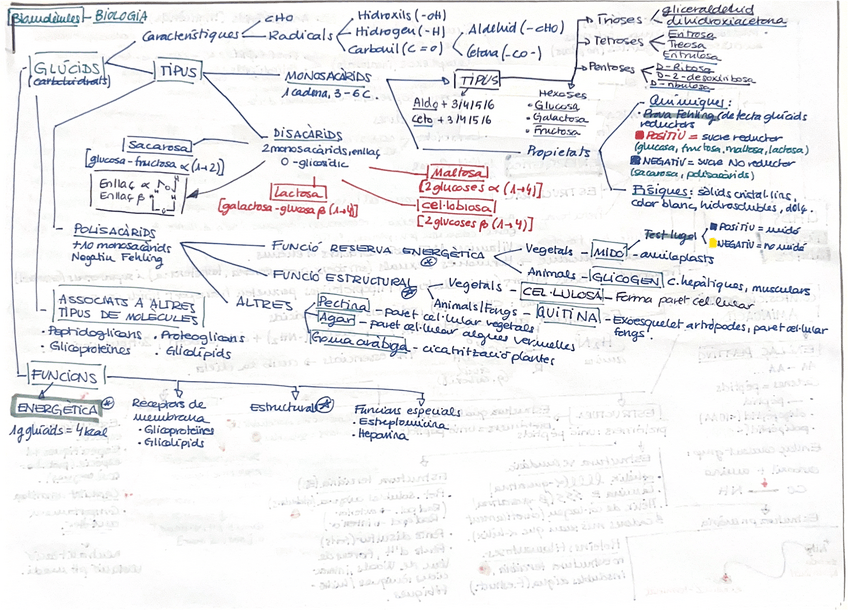 Biomolècules - BIOLOGIA
GLÚCIDS
(carbohidrats)
Característiques
CHO
Radicals
Hidroxils (-OH)
Hidrogen (-H)
Carbonil (C=O)
Aldehid (-CHO)
Cetona (-CO-)
TIPUS
MONOSACÀRIDS
1 cadena, 3-6 C.
TIPUS
Aldo + 3/4/5/6
Ceto + 3/4/5/6
Trioses
gliceraldehid
dihidroxiacetona
Tetroses
Eritrosa
Treosa
Eritrulosa
Pentoses
D-Ribosa
D-2-desoxiribosa
D-ribulosa
Hexoses
· Glucosa
· Galactosa
· Fructosa
Propietats
Químiques:
· Prova Fehling (detecta glúcids
reductors
POSITIU = sucre reductor
(glucosa, fructosa, maltosa, lactosa)
NEGATIU = sucre NO reductor
(sacarosa, polisacàrids)
Físiques: sòlids cristal·lins,
color blanc, hidrosolubles, dolç.
DISACÀRIDS
2 monosacàrids, enllaç
O-glicosídic
Sacarosa
[glucosa-fructosa α(1→2)]
Enllaç α
Enllaç β
Lactosa
[galactosa-glucosa β(1→4)]
Maltosa
[2 glucoses α (1→4)]
cel·lobiosa
[2 glucoses β (1→4)]
POLISACÀRIDS
+10 monosacàrids
Negatiu Fehling
FUNCIÓ RESERVA ENERGÈTICA
Vegetals - MIDÓ - amiloplasts
Test lugol
POSITIU = midó
NEGATIU = no midó
Animals - GLICOGEN C. hepàtiques, musculars
FUNCIÓ ESTRUCTURAL
Vegetals - CEL·LULOSA - Forma paret cel·lular
Animals/Fongs - QUITINA - Exoesquelet artròpodes, paret cel·lular
fongs.
ALTRES
Pectina - paret cel·lular vegetals
Agar - paret cel·lular algues vermelles
Goma aràbiga - cicatrització plantes
ASSOCIATS A ALTRES
TIPUS DE MOLÈCULES
· Peptidoglicans · Proteoglicans
· Glicoproteïnes · Glicolípids
FUNCIONS
ENERGÈTICA
1g glúcids = 4 kcal
Receptors de
membrana
· Glicoproteïnes
· Glicolípids
Estructurals
Funcions especials
· Estreptomicina
· Heparina